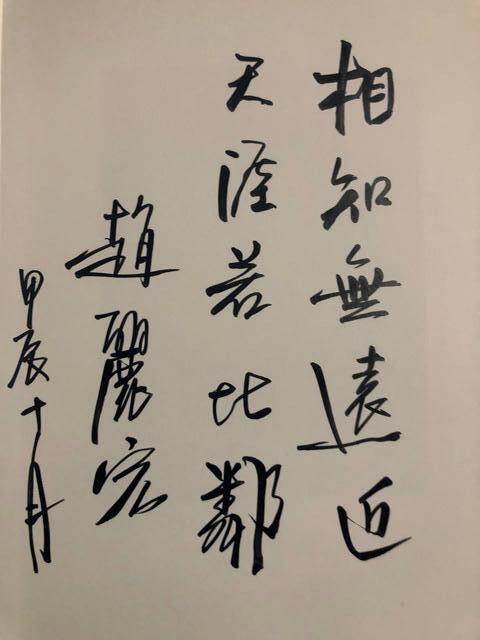 相知無遠近
天涯若比鄰
趙麗宏
甲辰十月